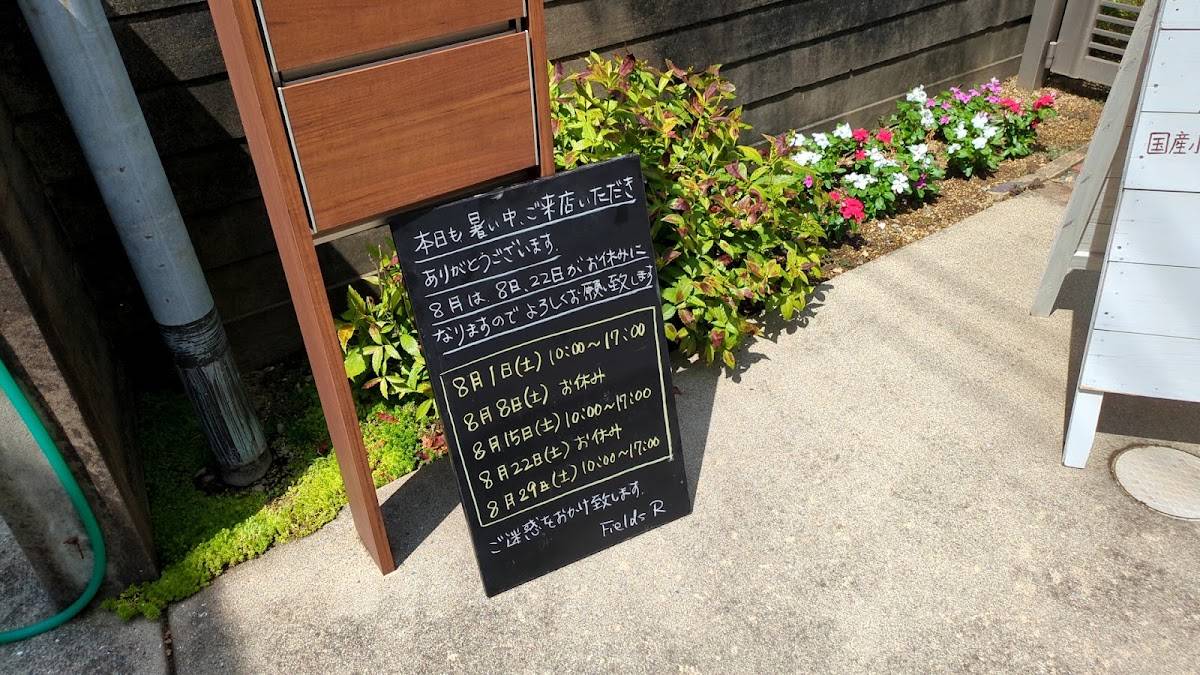 本日も暑い中、ご来店いただき
ありがとうございます。
8月は、8日、22日がお休みに
なりますのでよろしくお願い致します
8月1日(土) 10:00〜17:00
8月8日(土) お休み
8月15日(土) 10:00〜17:00
8月22日(土) お休み
8月29日(土) 10:00〜17:00
ご迷惑をおかけ致します。
Fields R
国産小